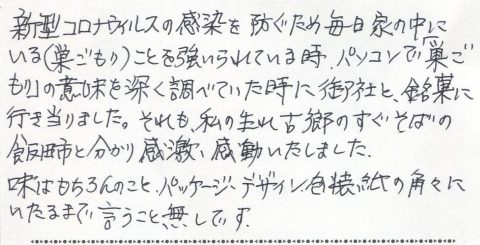 新型コロナウィルスの感染を防ぐため毎日家の中に
いる(巣ごもり)ことを強いられている時、パソコンで「巣ご
もり」の意味を深く調べていた時に、御社と、銘菓に
行き当りました。それも、私の生れ古郷のすぐそばの
飯田市と分かり感激、感動いたしました。
味はもちろんのこと、パッケージ、デザイン、包装紙の角々に
いたるまで言うこと無しです。